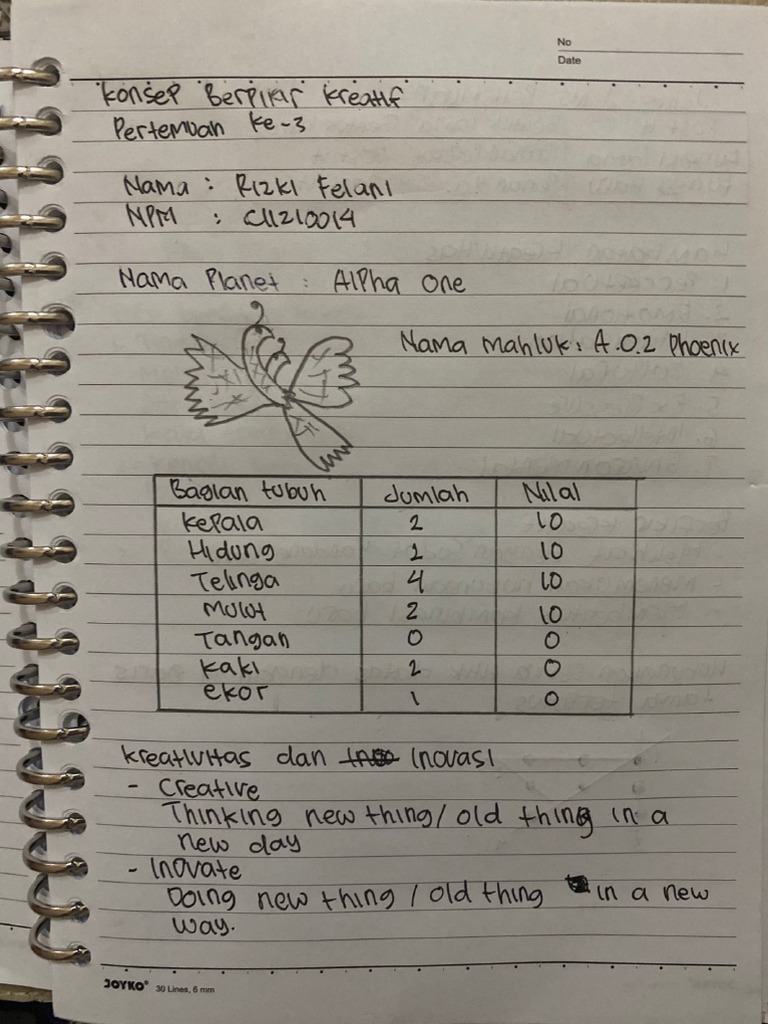 No
Date
Konsep Berpikir Kreatif
Pertemuan Ke-3
Nama : Rizki Felani
NPM : C11210014
Nama Planet : Alpha One
Nama mahluk : A.O.2 Phoenix
Bagian tubuh Jumlah Nilai
Kepala 2 10
Hidung 2 10
Telinga 4 10
Mulut 2 10
Tangan 0 0
Kaki 2 0
ekor 1 0
Kreativitas dan Inovasi
- Creative
Thinking new thing/ old thing in a
new day
- Inovate
Doing new thing / old thing in a new
way.
JOYKO® 30 Lines, 6 mm